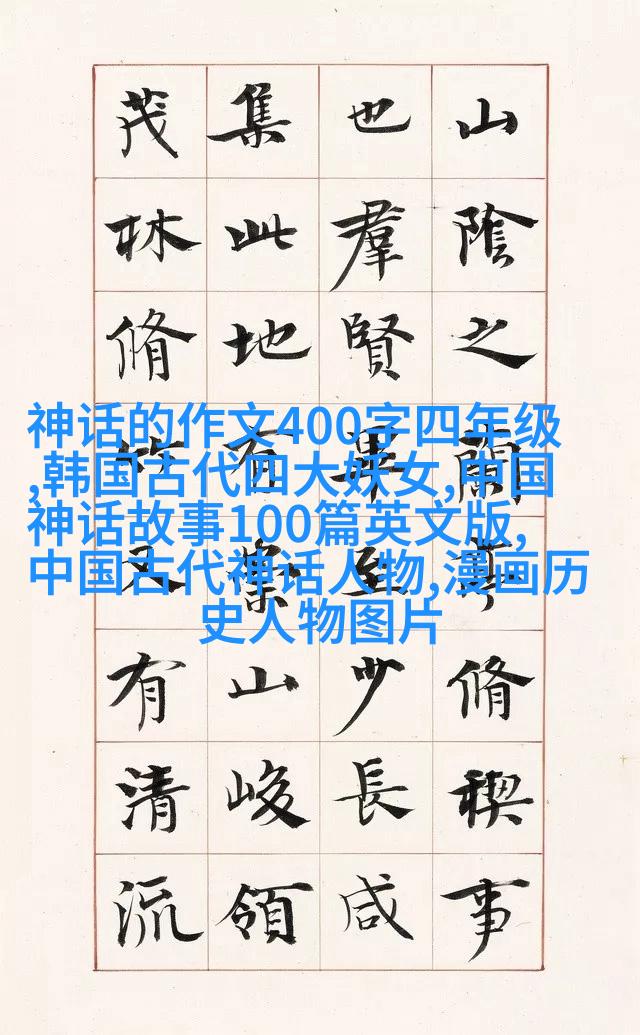 山陰之蘭亭脩稧事
也羣賢畢至少長咸
集此地有崇山峻領
茂林脩竹又有清流
神话的作文400字四年级
,韩国古代四大妖女,中国
神话故事100篇英文版,
中国古代神话人物,漫画历
史人物图片